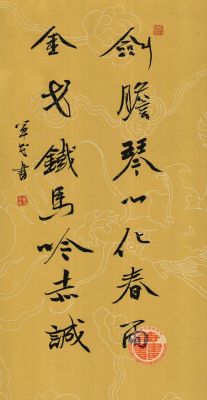 劍膽琴心化春雨
金戈鐵馬吟赤誠
軍茂書